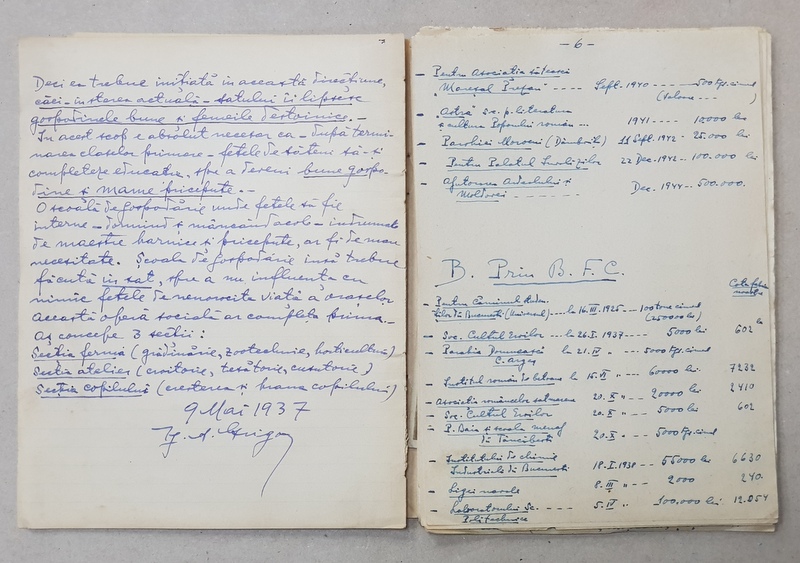 Deci ea trebue inițiată în această direcțiune,
căci în starea actuală satului îi lipsesc
gospodinele bune și femeile destoinice.
În acest scop e absolut necesar ca - după termi-
narea claselor primare - fetele de săteni să-și
completeze educația, spre a deveni bune gospo-
dine și mame pricepute.
O școală de gospodărie unde fetele să fie
interne - dormind și mâncând acolo - îndrumate
de maestre harnice și pricepute, ar fi de mare
necesitate. Școala de gospodărie însă trebue
făcută în sat, spre a nu influența cu
nimic fetele de nenorocita viață a orașelor
Această operă socială ar completa prima.
Aș concepe 3 secții:
Secția fermă (grădinărie, zootechnie, horticultură)
Secția atelier (croitorie, țesătorie, cusătorie)
Secția copilului (creșterea și hrana copilului)
9 Mai 1937
- 6 -
- Pentru Asociația sătească
Mareșal Prezan ---- Sept. 1940 ---- 500 kgr. ciment
- Astra Soc. p. literatura
și cultura Poporului român ... 1941 ---- 10.000 lei
- Parohiei Moroeni (Dâmbovița) 11 Sept. 1942 - 25.000 lei
- Pentru Palatul Invalizilor 22 Dec. 1942 - 100.000 lei
- Ajutorarea Ardealului și
Moldovei ---- Dec. 1944 - 500.000.
B. Prin B. F. C.
- Pentru Căminul Studen-
ților din București (Universal) ---- la 16.III.1925 --- 100 tone ciment
- Soc. Cultul Eroilor ... la 26.I.1937 ---- 5000 lei 602 lei
- Parohia Domnească la 21.IV " --- 5000 kgr. ciment
C. Argeș
- Institutul român de betoane la 15.VI " --- 60000 lei 7232
- Asociația româncelor 20.X " -- 20000 lei 2410
- Soc. Cultul Eroilor 20.X " --- 5000 lei 602
- P. Baia și școala menaj
din Târcăbești 20.X " --- 5000 kgr. ciment
- Institutului de chimie
Industrială din București 18.I.1938 --- 55000 lei 6630
- Ligei navale 8.III " --- 2000 240.
- Laboratorului Sc. ---- 5.IV " 100.000 lei 12.054
Politechnice